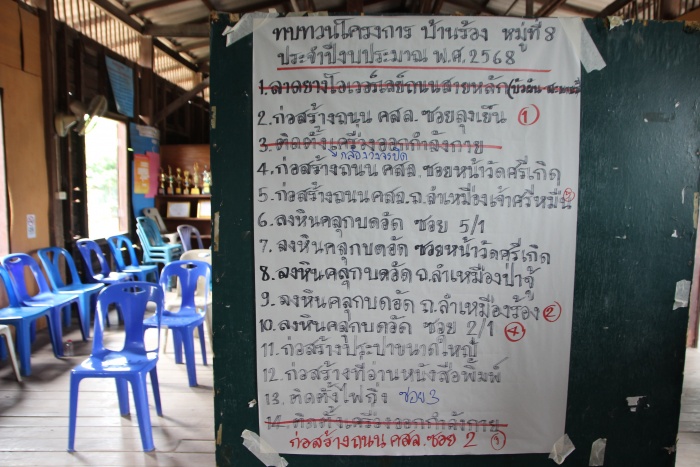 ทบทวนโครงการ บ้านร้อง หมู่ที่ 8
ประจำปีงบประมาณ พ.ศ.2568
1. ลาดยางโอเวอร์เลย์ถนนสายหลัก
2. ก่อสร้างถนน คสล. ซอยลุงเย็น ①
3. ติดตั้งเครื่องออกกำลังกาย
กล้องวงจรปิด
4. ก่อสร้างถนน คสล. ซอยหน้าวัดศรีเกิด
5. ก่อสร้างถนน คสล. ถ.ลำเหมืองเจ้าศรีหมื่น
6. ลงหินคลุกบดอัด ซอย 5/1
7. ลงหินคลุกบดอัด ซอยหน้าวัดศรีเกิด
8. ลงหินคลุกบดอัด ถ.ลำเหมืองป่าจู้
9. ลงหินคลุกบดอัด ถ.ลำเหมืองร้อง ②
10. ลงหินคลุกบดอัด ซอย 2/1 ④
11. ก่อสร้างประปาขนาดใหญ่
12. ก่อสร้างที่อ่านหนังสือพิมพ์
13. ติดตั้งไฟกิ่ง ซอย 3
14. ติดตั้งเครื่องออกกำลังกาย
ก่อสร้างถนน คสล. ซอย 2